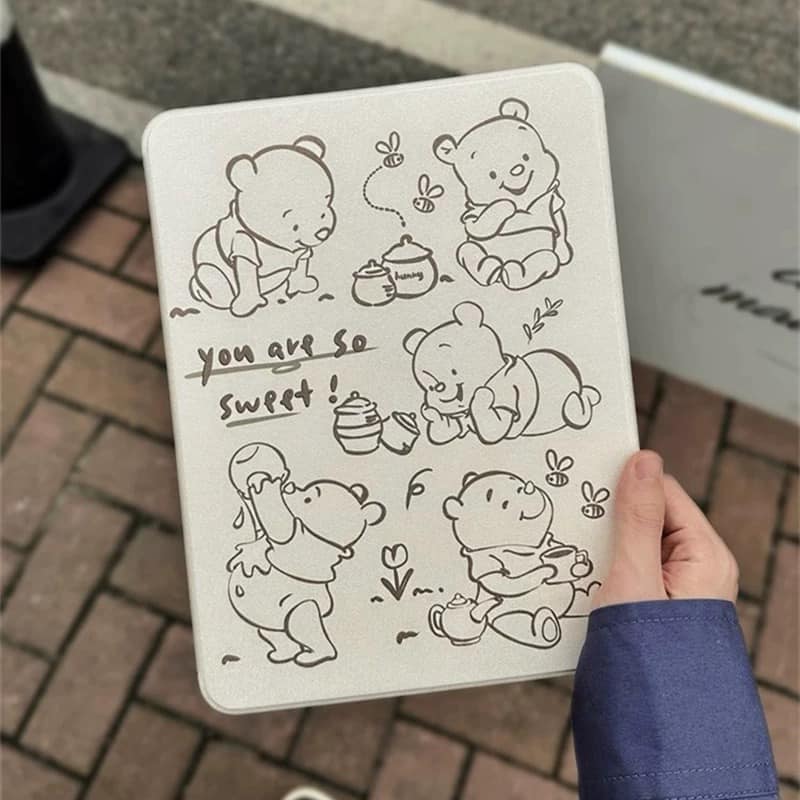 hunny
you are so
sweet!